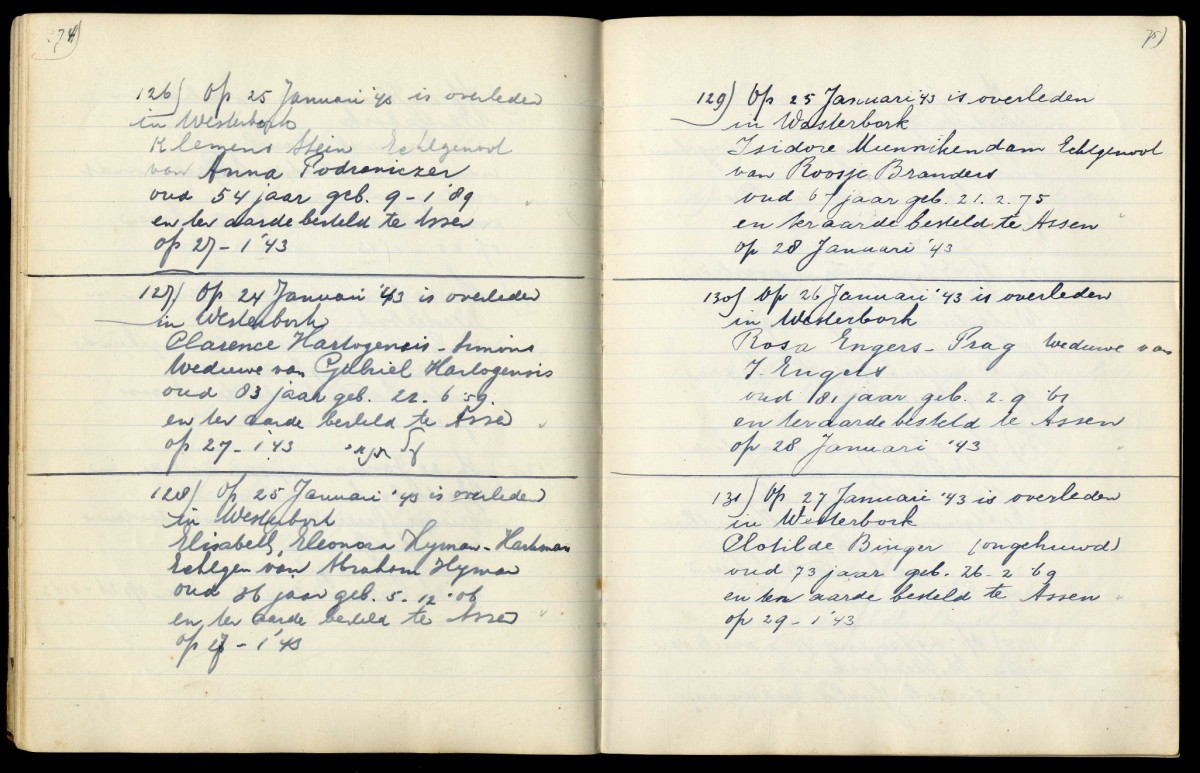 74)
126) Op 25 Januari '43 is overleden
in Westerbork
Klemens Stein Echtgenoot
van Anna Podraniczer
oud 54 jaar geb. 9-1 '89
en ter aarde besteld te Assen
op 27-1 '43
127) Op 24 Januari '43 is overleden
in Westerbork
Clarence Hartogensis-Simons
Weduwe van Gabriel Hartogensis
oud 83 jaar geb. 22.6 '59.
en ter aarde besteld te Assen
op 27-1 '43
128) Op 25 Januari '43 is overleden
in Westerbork
Elisabeth, Eleonora Hyman-Harkman
Echtgen van Abraham Hyman
oud 36 jaar geb. 5.12 '06
en ter aarde besteld te Assen
op 27-1 '43
75)
129) Op 25 Januari '43 is overleden
in Westerbork
Isidore Munnikendam Echtgenoot
van Roosje Branders
oud 67 jaar geb. 21.2.75
en ter aarde besteld te Assen
op 28 Januari '43
130) Op 26 Januari '43 is overleden
in Westerbork
Rosa Engers-Prag Weduwe van
J. Engers
oud 81 jaar geb. 2.9 '61
en ter aarde besteld te Assen
op 28 Januari '43
131) Op 27 Januari '43 is overleden
in Westerbork
Clotilde Binger (ongehuwd)
oud 73 jaar geb. 26-2 '69
en ter aarde besteld te Assen
op 29-1 '43